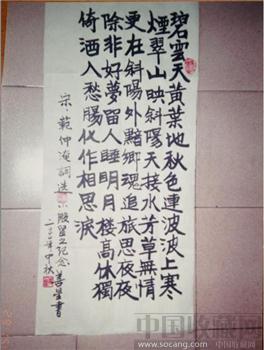 碧雲天黄葉地秋色連波波上寒
煙翠山映斜陽天接水芳草無情
更在斜陽外黯鄉魂追旅思夜夜
除非好夢留人睡明月樓高休獨
倚酒入愁腸化作相思淚
宋、範仲淹詞選 紀念 善 書
年中秋
中国收藏网
www.socang.com